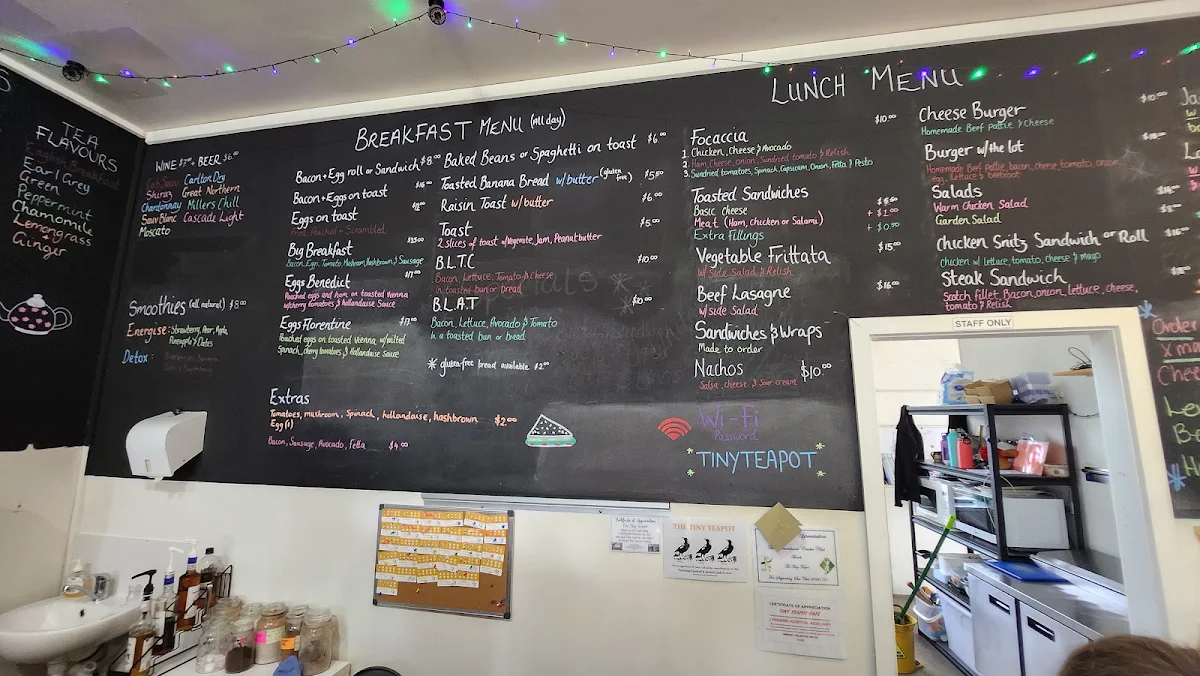 S
TEA
FLAVOURS
English Breakfast
Earl Grey
Green
Peppermint
Chamomile
Lemongrass
Ginger
WINE $7.00 BEER $6.00
Cab Sauv Carlton Dry
Shiraz Great Northern
Chardonnay Millers Chill
Sauv Blanc Cascade Light
Moscato
Smoothies (all natural) $8.00
Energise: Strawberry, Pear, Apple,
Pineapple & Dates
Detox:
BREAKFAST MENU (All day)
Bacon + Egg roll or Sandwich $8.00
Bacon + Eggs on toast
Eggs on toast
Fried Poached or Scrambled
Big Breakfast
Bacon, Eggs, Tomato, Mushroom, Hashbrown & Sausage
Eggs Benedict
Poached eggs and ham on toasted vienna
w/cherry tomatoes & Hollandaise Sauce
Eggs Florentine
Poached eggs on toasted vienna, w/wilted
Spinach, cherry tomatoes, & Hollandaise Sauce
Extras
Tomatoes, mushroom, Spinach, hollandaise, hashbrown $2.00
Egg (1)
Bacon, Sausage, Avocado, Fetta $4.00
Baked Beans or Spaghetti on toast $6.00
Toasted Banana Bread w/butter (gluten free)
Raisin Toast w/butter $6.00
Toast $5.00
2 slices of toast w/Vegemite, Jam, Peanut butter
B.L.T.C
Bacon, Lettuce, Tomato & Cheese
in toasted bun or bread
B.L.A.T $10.00
Bacon, Lettuce, Avocado & Tomato
in a toasted bun or bread
* gluten-free bread available $2.00
LUNCH MENU
Focaccia $10.00
1. Chicken, Cheese & Avocado
2. Ham, Cheese, onion, Sundried tomato & Relish
3. Sundried tomatoes, Spinach, Capsicum, Onion, Fetta & Pesto
Toasted Sandwiches
Basic cheese
Meat (Ham, chicken or Salami) + $1.00
Extra Fillings + $0.50
Vegetable Frittata $15.00
w/ Side Salad & Relish
Beef Lasagne $16.00
w/side Salad
Sandwiches & Wraps
Made to order
Nachos $10.00
Salsa, cheese & Sour cream
Wi-Fi
Password
TINYTEAPOT
Cheese Burger $10.00
Homemade Beef pattie & Cheese
Burger w/the lot
Homemade Beef pattie, bacon, cheese, tomato, onion,
egg, lettuce & beetroot
Salads
Warm Chicken Salad
Garden Salad
Chicken Snitz Sandwich or Roll
chicken w/ lettuce, tomato, cheese & mayo
Steak Sandwich
Scotch fillet, Bacon, onion, lettuce, cheese,
tomato & Relish
STAFF ONLY
Order
Xma
Chee
THE TINY TEAPOT
Certificate of Appreciation
CERTIFICATE OF APPRECIATION
TINY TEAPOT CAFE